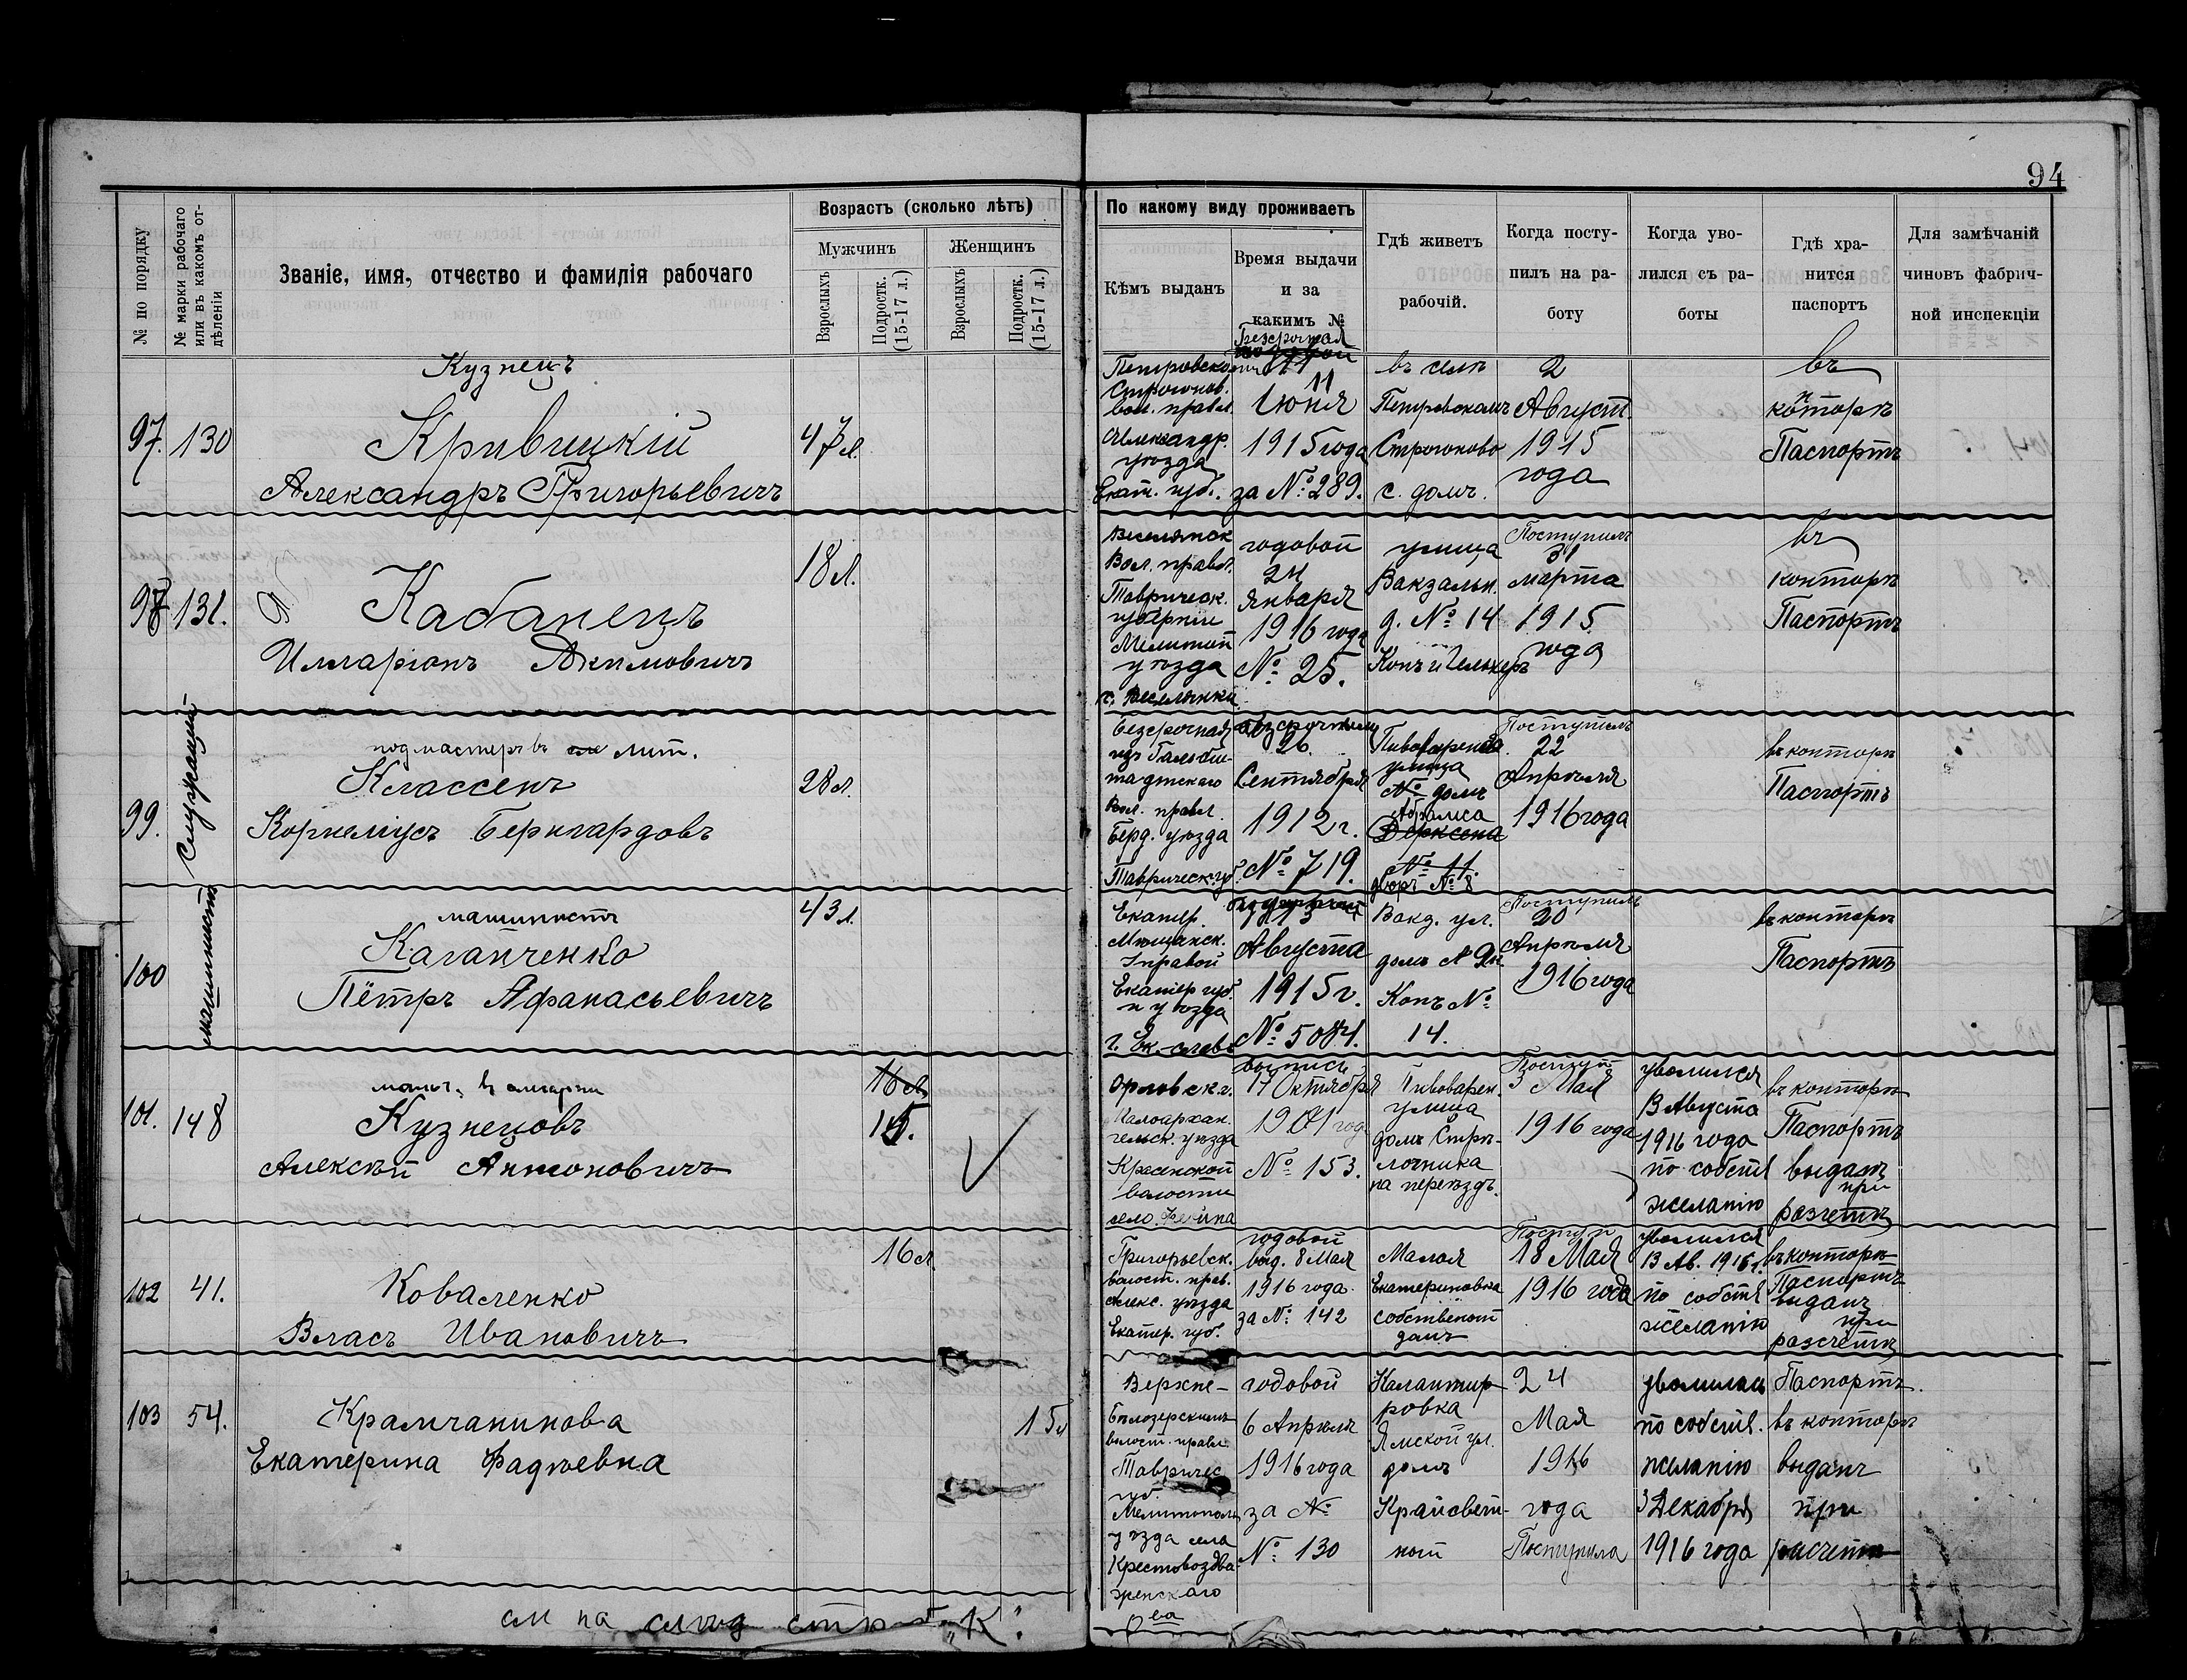 94
№ по порядку
№ марки рабочаго или въ какомъ отдѣленіи
Званіе, имя, отчество и фамилія рабочаго
Возрастъ (сколько лѣтъ)
Мужчинъ
Женщинъ
Взрослыхъ
Подростк. (15-17 л.)
Взрослыхъ
Подростк. (15-17 л.)
По какому виду проживаетъ
Кѣмъ выданъ
Время выдачи
и за
какимъ №
Гдѣ живетъ
рабочій.
Когда посту-
пилъ на ра-
боту
Когда уво-
лился съ ра-
боты
Гдѣ хра-
нится
паспортъ
Для замѣчаній
чиновъ фабрич-
ной инспекціи
97. 130
Кузнецъ
Кривицкій
Александръ Григорьевичъ
47 л.
вол. правл.
Александр.
уѣзда
Екат. губ.
11
Іюня
1915 года
за № 289.
въ селѣ
с. домъ.
2
Август
1915
года
въ
конторѣ
Паспортъ
98 131.
Кабанецъ
Илларіонъ Акимовичъ
18 л.
Вол. правл.
Таврическ.
губерніи
Мелитоп
уѣзда
с. Веселянки
годовой
24
Января
1916 года
№ 25.
улица
Вакзальн.
д. № 14
Поступилъ
31
марта
1915
года
въ
конторѣ
Паспортъ
99.
Служащій
подмастеръ въ лит.
Классенъ
Корнеліусъ Бернгардовъ
28 л.
тадтскаго
Вол. правл.
Берд. уѣзда
Таврическ. г.
26
Сентября
1912 г.
№ 719.
улица
№ домъ
Дерксена
№ 11.
дворъ № 8
Поступилъ
22
Апрѣля
1916 года
въ конторѣ
Паспортъ
100
машинистъ
машинистъ
Пётръ Афанасьевичъ
43 л.
Екатер.
Мѣщанск.
Управой
Екатер губ.
и уѣзда
г. Ек.-славъ
Августа
1915 г.
№ 5084.
Вакз. ул.
14.
Поступилъ
20
Апрѣля
1916 года
въ конторѣ
Паспортъ
101. 148
Кузнецовъ
Алексѣй Антоновичъ
16 л.
15.
Орловск г.
Малоархан.
гельск. уѣзда
волости
село
выпись
17 Октября
1901 год
№ 153.
Пивоварен.
улица
домъ Стрѣ-
лочника
на переѣздѣ.
Поступ
3 Мая
1916 года
уволился
1916 года
по собств
желанію
въ конторѣ
Паспортъ
выданъ
при
разчетѣ
102 41.
Коваленко
Власъ Ивановичъ
16 л.
Григорьевск.
волост. прав.
Алекс. уѣзда
Екатер. губ.
годовой
выд. 8 Мая
1916 года.
за № 142
Малая
Екатериновка
собственой
домъ
18 Мая
1916 года
уволился
13 Ав. 1916 г.
по собств
желанію
въ конторѣ
Паспортъ
выданъ
при
разсчётѣ
103 54.
Крамчанинова
Екатерина Фадѣевна
15 л
Верхне-
Бѣлозерскимъ
волост. правл.
Тавричес
губ.
Мелитополь
уѣзда села
Крестовоздви
женскаго
годовой
6 Апрѣля
1916 года
за №
№ 130
Калантир
ровка
Ямской ул.
домъ
24
Мая
1916
года
Поступила
уволилась
по собств.
желанію
3 Декабря
1916 года
Паспортъ.
въ конторѣ
выданъ
при
расчетѣ
см на след стр „К“.